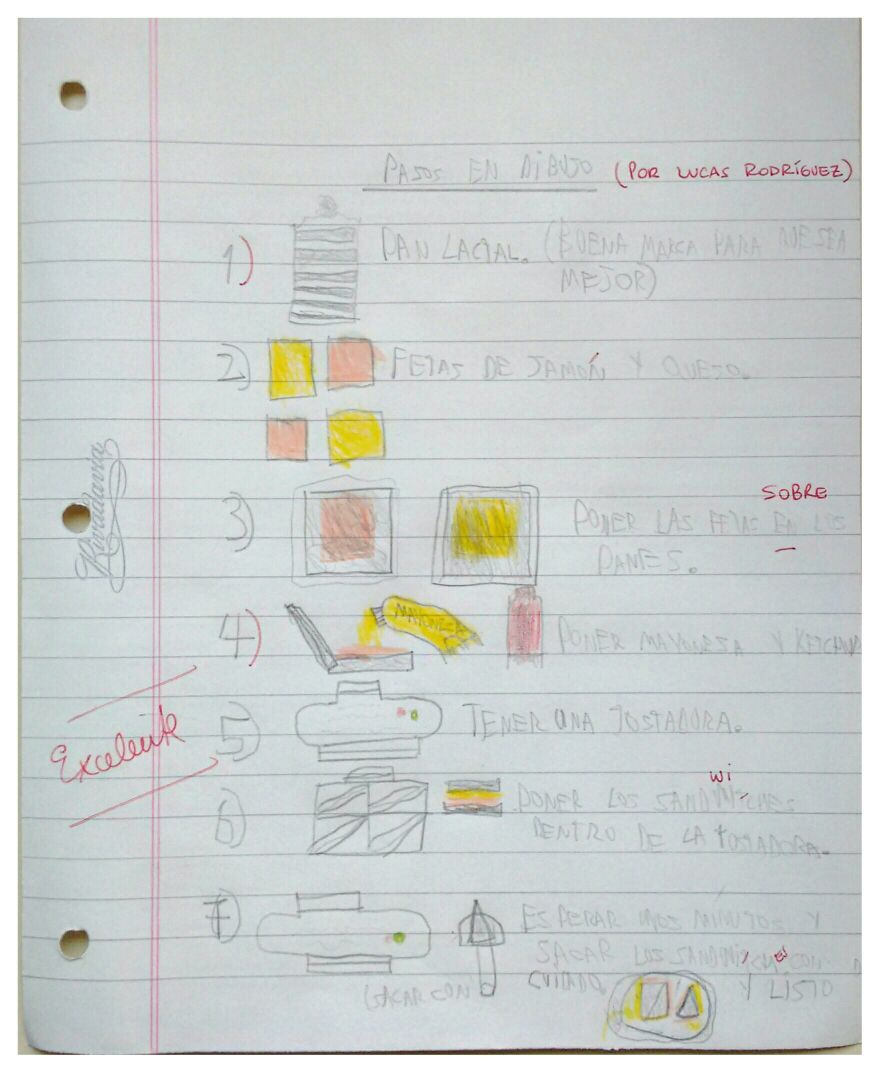 PASOS EN DIBUJO (POR LUCAS RODRÍGUEZ)
1) PAN LACTAL. (BUENA MARCA PARA QUE SEA
MEJOR)
2) FETAS DE JAMÓN Y QUESO.
SOBRE
3) PONER LAS FETAS EN LOS
PANES.
Rivadavia
MAYONESA
4) PONER MAYONESA Y KETCHUP
5) TENER UNA TOSTADORA.
Excelente
wi
6) PONER LOS SANDWICHES
DENTRO DE LA TOSTADORA.
7) ESPERAR UNOS MINUTOS Y
SACAR LOS SANDWICHES CON
SACAR CON CUIDADO. Y LISTO